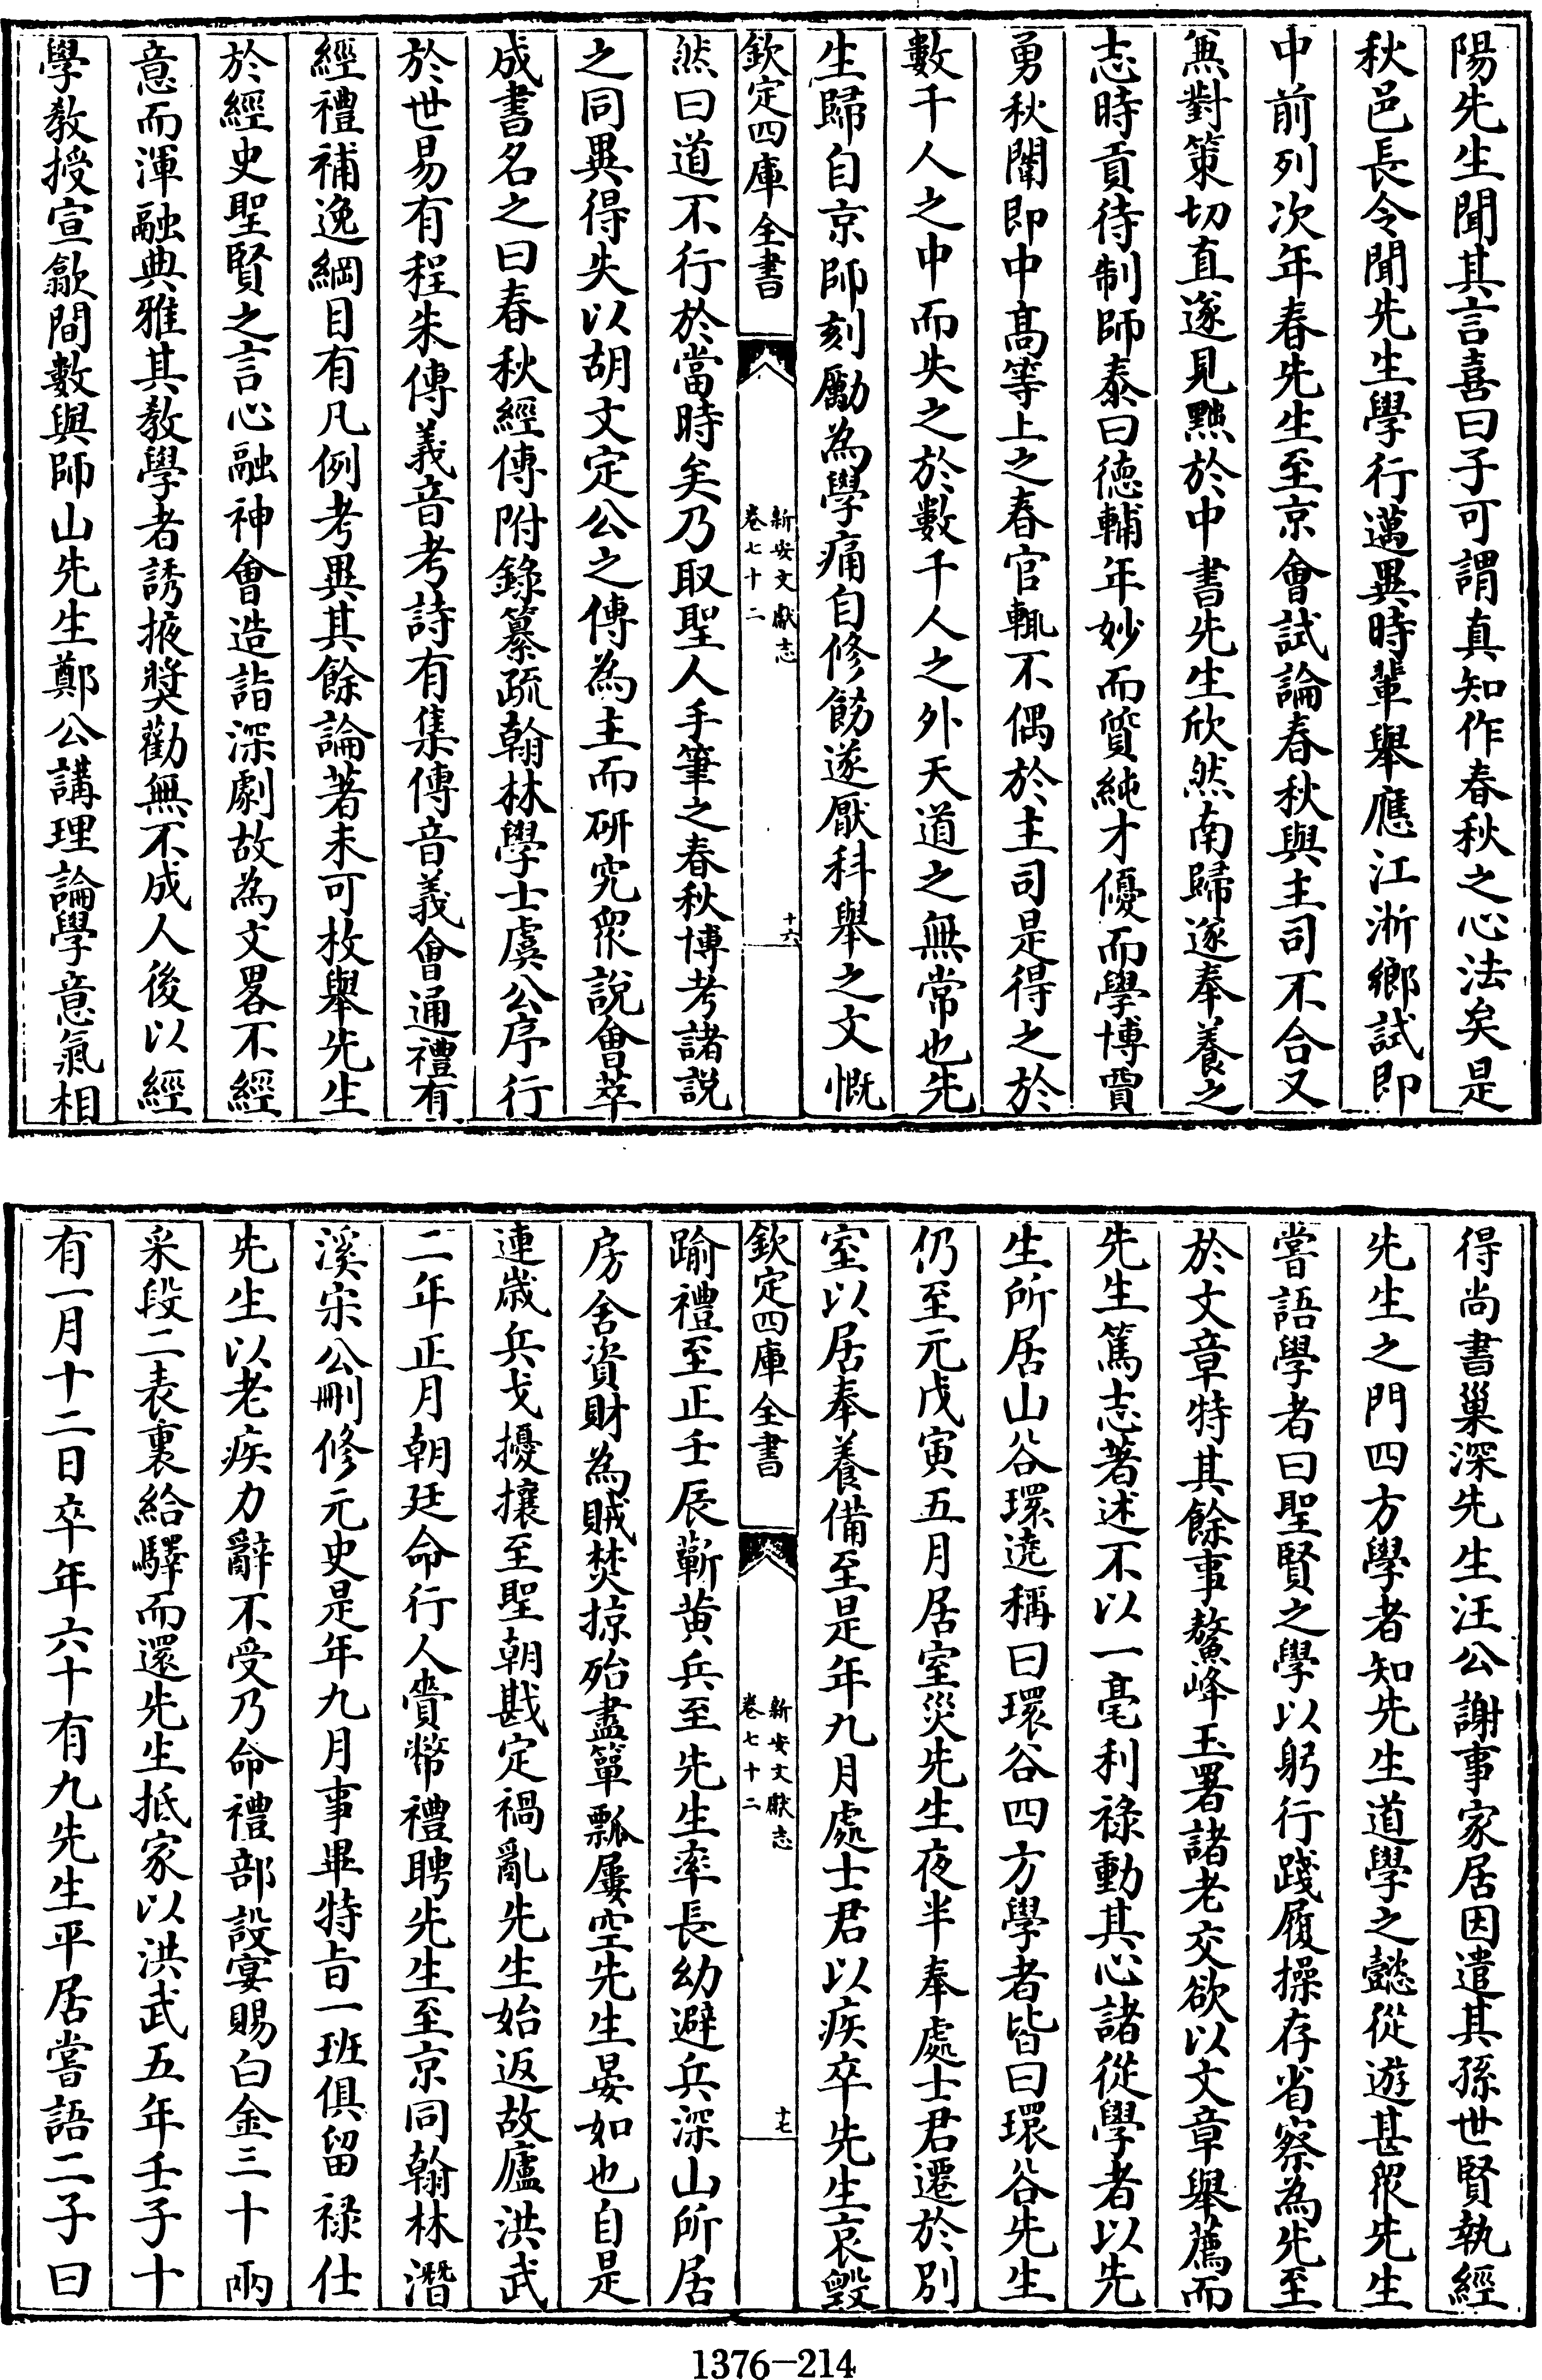 陽先生聞其言喜曰子可謂真知作春秋之心法矣是
秋邑長令聞先生學行邁異時輩舉應江浙鄉試即
中前列次年春先生至京會試論春秋與主司不合又
無對策切直遂見黜於中書先生欣然南歸遂奉養之
志時貢待制師泰曰德輔年妙而質純才優而學博賈
勇秋闈即中髙等上之春官輒不偶於主司是得之於
數千人之中而失之於數千人之外天道之無常也先
生歸自京師刻勵為學痛自修飭遂厭科舉之文慨
欽定四庫全書
新安文獻志
卷七十二
十六
然曰道不行於當時矣乃取聖人手筆之春秋博考諸説
之同異得失以胡文定公之傳為主而研究衆説會萃
成書名之曰春秋經傳附錄纂疏翰林學士虞公序行
於世易有程朱傳義音考詩有集傳音義會通禮有
經禮補逸綱目有凡例考異其餘論著未可枚舉先生
於經史聖賢之言心融神會造詣深劇故為文畧不經
意而渾融典雅其教學者誘掖奬勸無不成人後以經
學教授宣歙間數與師山先生鄭公講理論學意氣相
得尚書巢深先生汪公謝事家居因遣其孫世賢執經
先生之門四方學者知先生道學之懿從遊甚衆先生
嘗語學者曰聖賢之學以躬行踐履操存省察為先至
於文章特其餘事鰲峰玉署諸老交欲以文章舉薦而
先生篤志著述不以一毫利祿動其心諸從學者以先
生所居山谷環遶稱曰環谷四方學者皆曰環谷先生
仍至元戊寅五月居室災先生夜半奉處士君遷於別
室以居奉養備至是年九月處士君以疾卒先生哀毀
欽定四庫全書
新安文獻志
卷七十二
十七
踰禮至正壬辰蘄黄兵至先生率長幼避兵深山所居
房舍資財為賊焚掠殆盡簞瓢屢空先生晏如也自是
連歲兵戈擾攘至聖朝戡定禍亂先生始返故廬洪武
二年正月朝廷命行人賫幣禮聘先生至京同翰林潛
溪宋公刪修元史是年九月事畢特旨一班俱留祿仕
先生以老疾力辭不受乃命禮部設宴賜白金三十兩
采段二表裏給驛而還先生抵家以洪武五年壬子十
有一月十二日卒年六十有九先生平居嘗語二子曰
1376-214